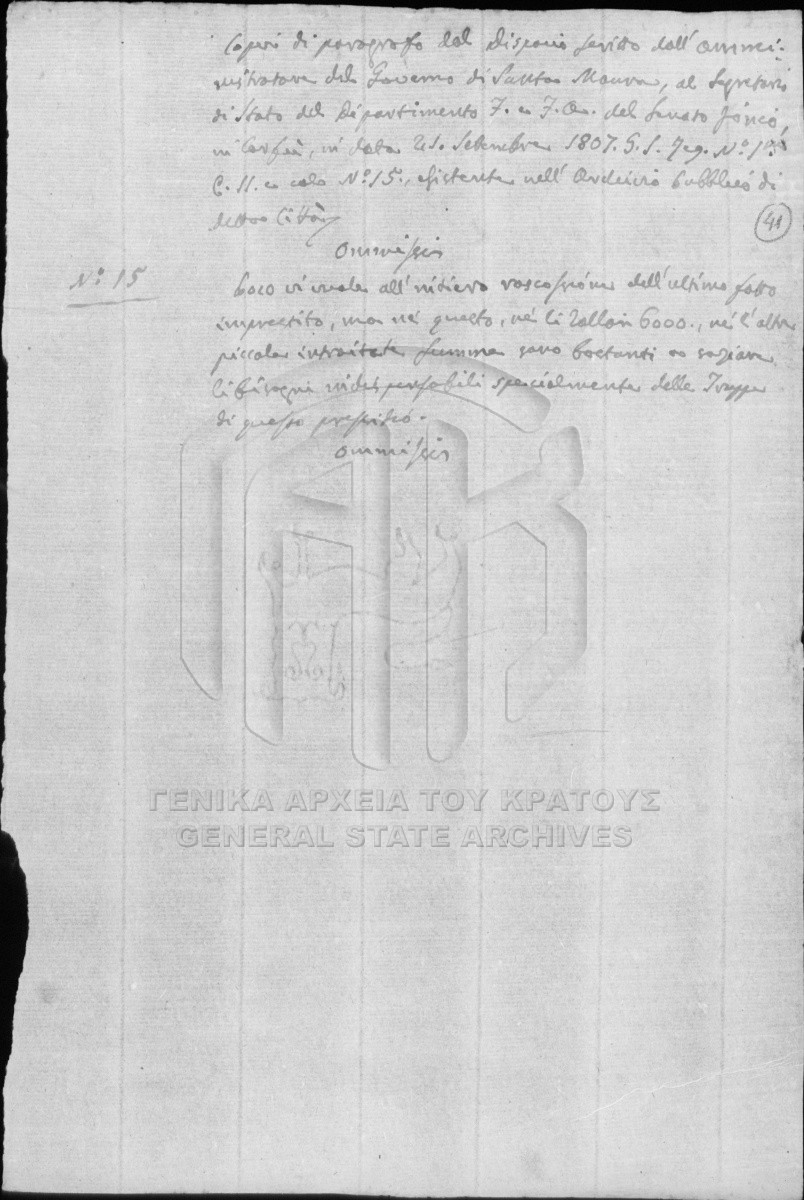 Copia di paragrafo del Dispacio scritto dall' Ammi-
nistratore del Governo di Santa Maura, al Segretario
di Stato del Dipartimento F. e F. A. del Senato Jonico,
in Corfù, in data 21. Settembre 1807. S. S. Reg. No. 1
C. 11. e colo No. 15., esistente nell' Archivio Pubblico di
detta Città
41
Ommissis
No. 15
Poco vi vuole all' intiera riscossione dell' ultimo fatto
imprestito, ma nè questo, nè li Talleri 6000., nè l' altre
piccole introitate summe sono bastanti a saziare
li bisogni indispensabili specialmente delle Truppe
di questo presidio.
Ommissis
ΓΕΝΙΚΑ ΑΡΧΕΙΑ ΤΟΥ ΚΡΑΤΟΥΣ
GENERAL STATE ARCHIVES